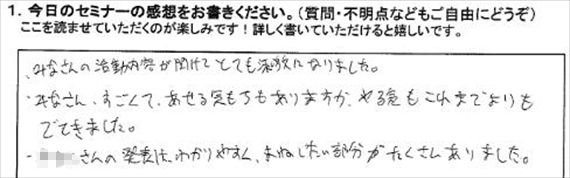 1. 今日のセミナーの感想をお書きください。（質問・不明点などもご自由にどうぞ）
ここを読ませていただくのが楽しみです！詳しく書いていただけると嬉しいです。
・みなさんの活動内容が聞けてとても刺激になりました。
・みなさん、すごくて、あせる気もちもありますが、やる気もこれまでよりも
でてきました。
・さんの発表は、わかりやすく、まねしたい部分がたくさんありました。